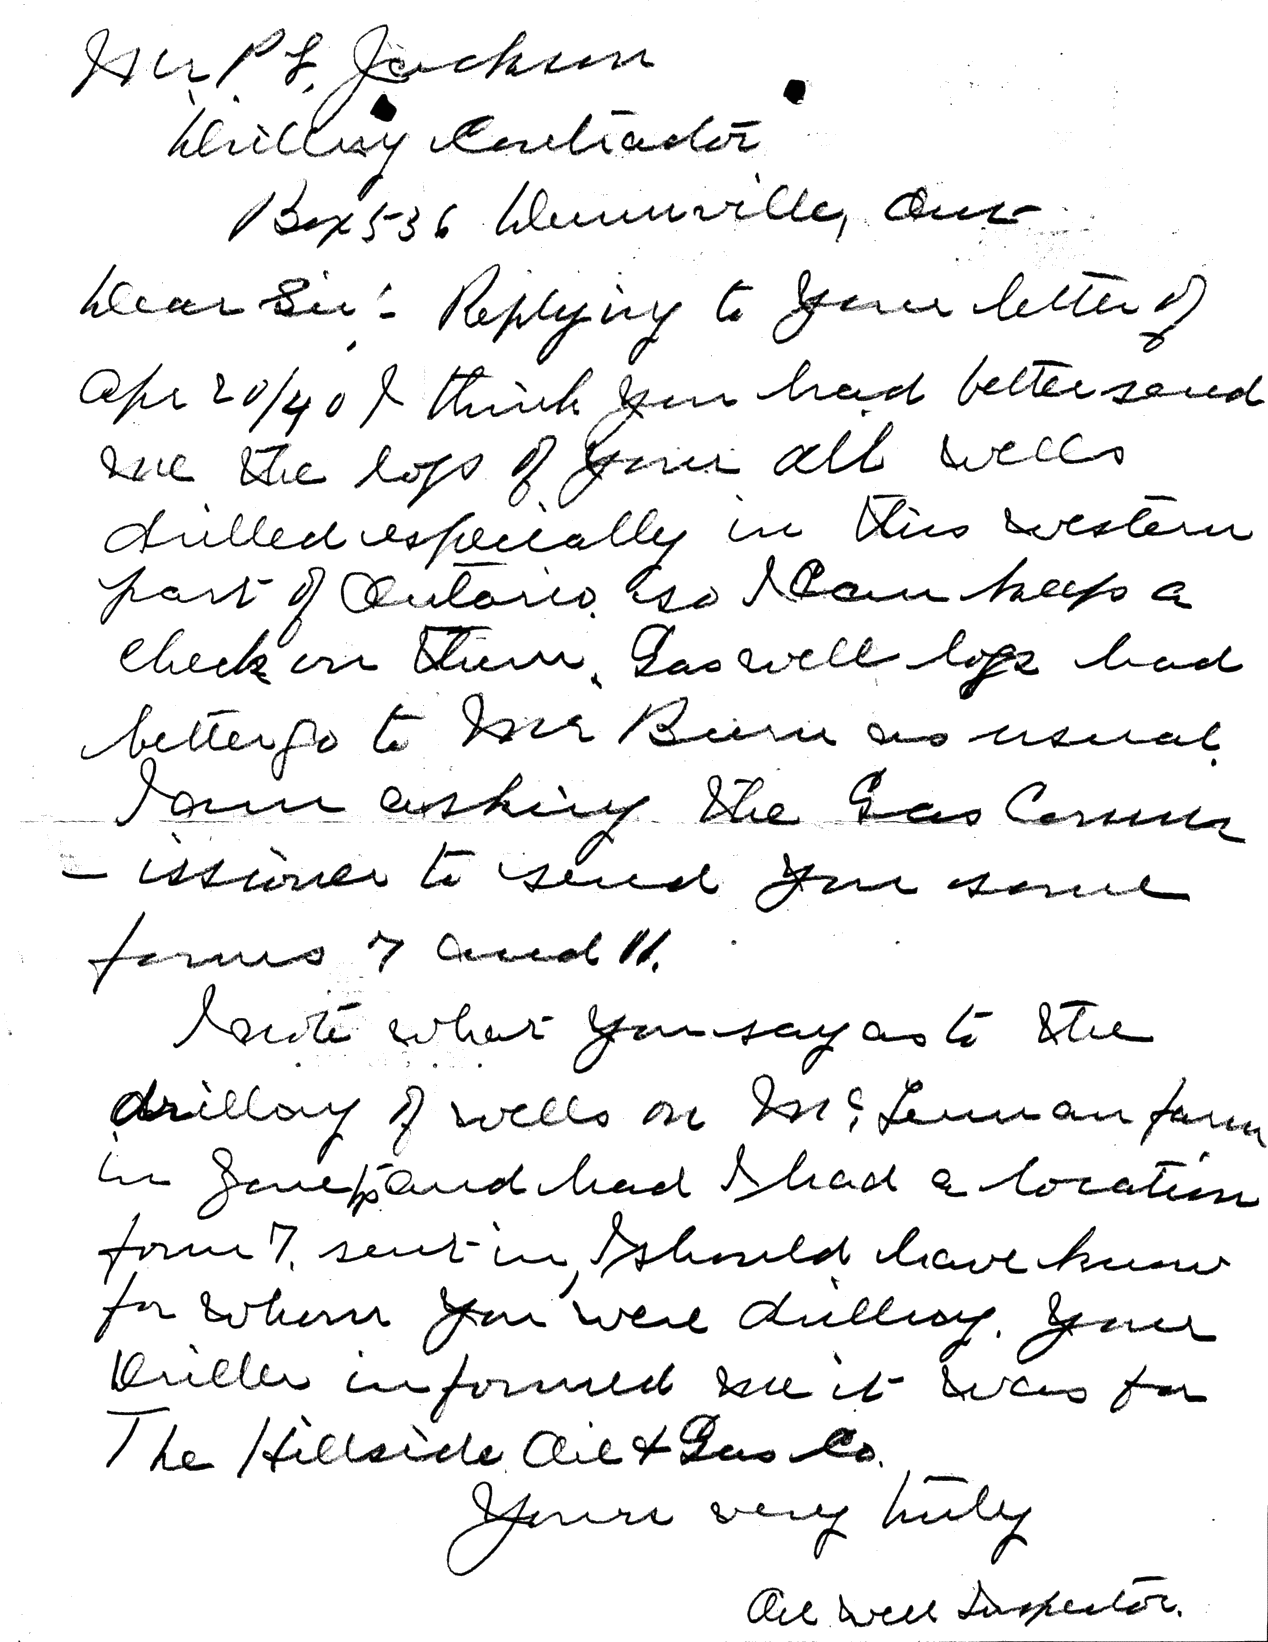 Mr P L, Jackson
Drilling Contractor
Box 536 Dunnville, Ont
Dear Sir:- Replying to your letter of
Apr 20/40 I think you had better send
me the logs of your all wells
drilled especially in this western
part of Ontario so I can keep a
check on them. Gas well logs had
better go to Mr Burn as usual.
I am asking the Gas Comm
- issioner to send you some
forms 7 and 11.
I note what you say as to the
drilling of wells on McLennan farm
in Zone and had I had a location
form 7. sent in, I should have know
for whom you were drilling. Your
Driller informed me it was for
The Hillside Oil & Gas Co.
Yours very truly
Oil Well Inspector.